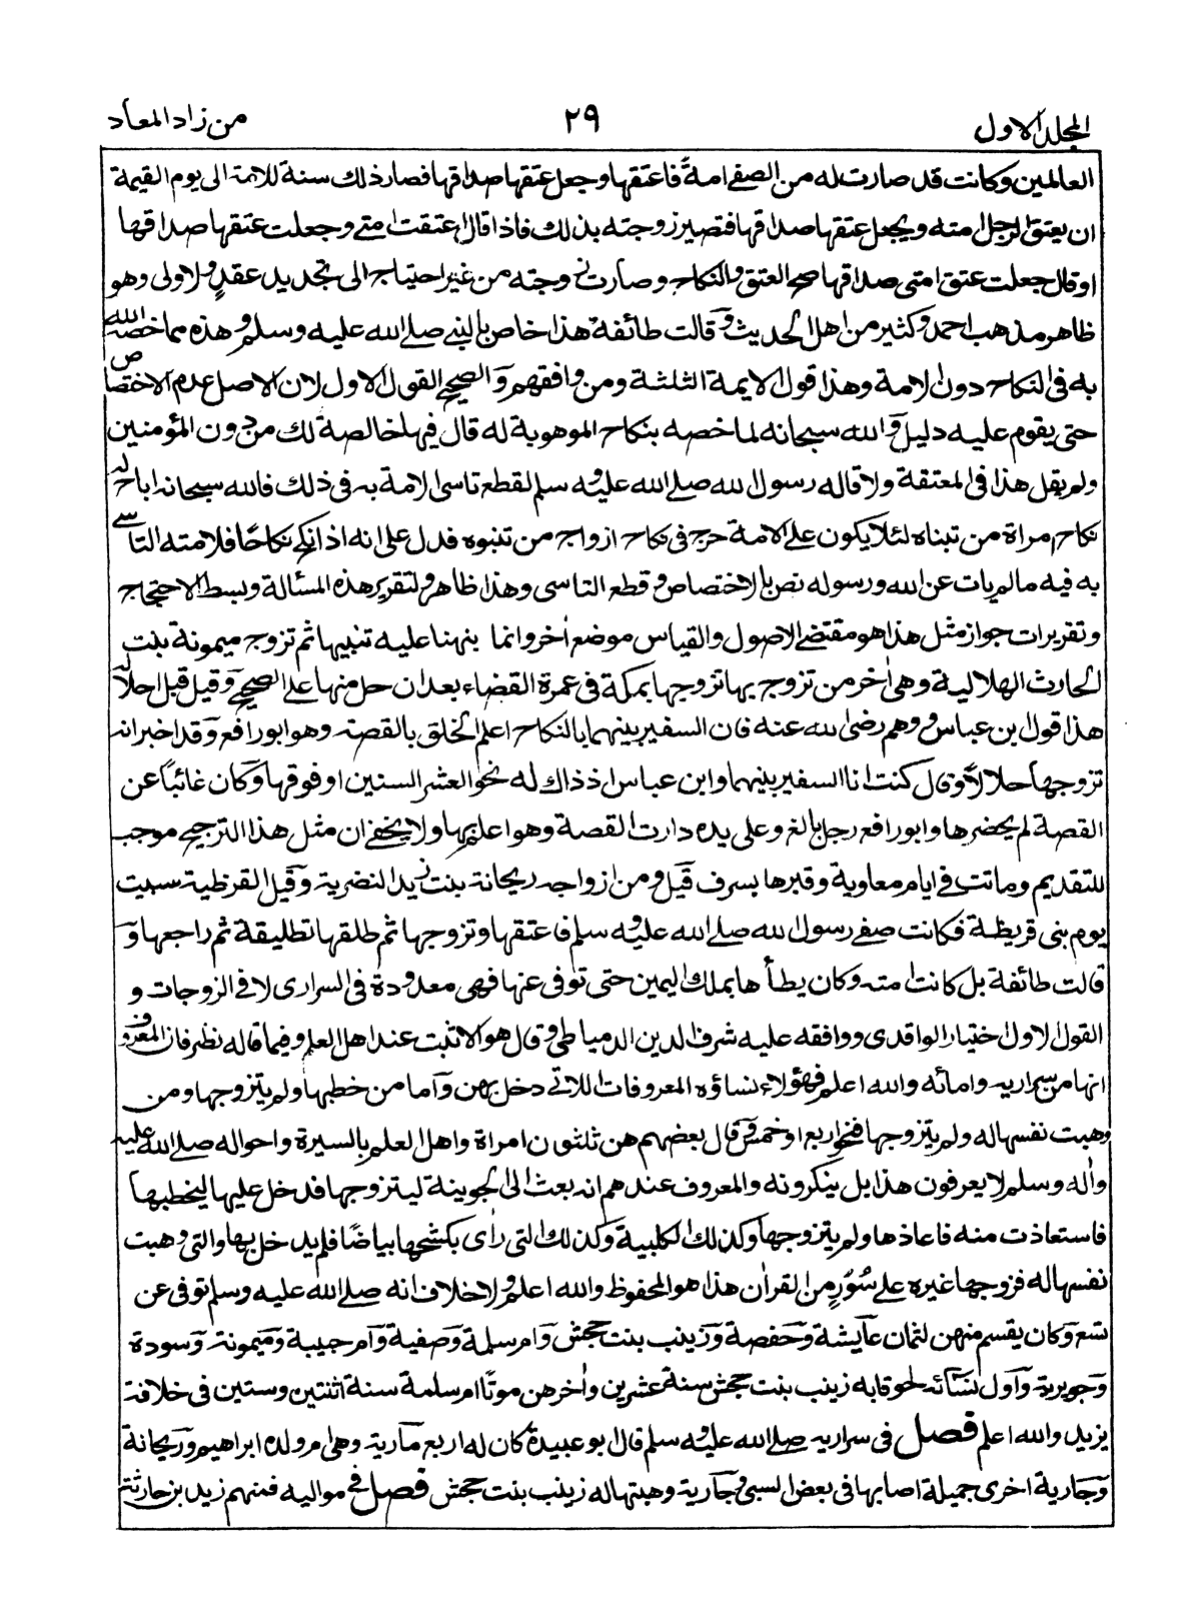 المجلد الاول
٢٩
من زاد المعاد
العالمين وكانت قد صارت له من الصفے امةً فاعتقها وجعل عتقها صداقها فصار ذلك سنة للامة الى يوم القيمة
ان يعتق الرجل امته ويجعل عتقها صداقها فتصير زوجته بذلك فاذا قال اعتقت امتے وجعلت عتقها صداقها
او قال جعلت عتق امتى صداقها صح العتق والنكاح وصارت زوجته من غير احتياج الى تجديد عقدٍ ولا ولى وهو
ظاهر مذهب احمد وكثير من اهل الحديث وقالت طائفة هذا خاص بالنبے صلے الله عليه وسلم وهذه مما خصه الله
به فى النكاح دون الامة وهذا قول الايمة الثلثة ومن وافقهم والصحيح القول الاول لان الاصل عدم الاختصاص
حتى يقوم عليه دليل والله سبحانه لما خصه بنكاح الموهوبة له قال فيها خالصة لك من دون المؤمنين
ولم يقل هذا فى المعتقة ولا قاله رسول الله صلے الله عليه وسلم لقطع تاسى الامة به فى ذلك فالله سبحانه اباح له
نكاح امراة من تبناه لئلا يكون علے الامة حرج فى نكاح ازواج من تبنوه فدل على انه اذا نكح نكاحًا فلامته التاسے
به فيه ما لم يات عن الله ورسوله نص بالاختصاص وقطع التاسى وهذا ظاهر ولتقرير هذه المسألة وبسط الاحتجاج
وتقريرات جواز مثل هذا هو مقتضے الاصول والقياس موضع اٰخر وانما ينهنا عليه تنبيها ثم تزوج ميمونة بنت
الحارث الهلالية وهى اٰخر من تزوج بها تزوجها بمكة فى عمرة القضاء بعد ان حل منها علے الصحيح وقيل قبل احلاله
هذا قول ابن عباس ووهم رضى الله عنه فان السفير بينهما بالنكاح اعلم الخلق بالقصة وهو ابو رافع وقد اخبر انه
تزوجها حلالا وقال كنت انا السفير بينهما وابن عباس اذ ذاك له نحو العشر السنين او فوقها وكان غائبًا عن
القصة لم يحضرها وابو رافع رجل بالغ وعلى يده دارت القصة وهو اعلم بها ولا يخفے ان مثل هذا الترجيح موجب
للتقديم وماتت فى ايام معاوية وقبرها بسرف قيل ومن ازواجه ريحانة بنت زيد النضرية وقيل القرظية سبيت
يوم بنى قريظة فكانت صفے رسول الله صلے الله عليه وسلم فاعتقها وتزوجها ثم طلقها تطليقة ثم راجعها و
قالت طائفة بل كانت امته وكان يطأها بملك اليمين حتى توفى عنها فهى معدودة فى السرارى لا فى الزوجات و
القول الاول اختيار الواقدى ووافقه عليه شرف الدين الدمياطى وقال هو الاثبت عند اهل العلم وفيما قاله نظر فان المعروف
انها من سراريه وامائه والله اعلم فهؤلاء نساؤه المعروفات اللاتے دخل بهن واما من خطبها ولم يتزوجها ومن
وهبت نفسها له ولم يتزوجها فنحو اربع او خمس وقال بعضهم هن ثلثون امراة واهل العلم بالسيرة واحواله صلے الله عليه
واٰله وسلم لا يعرفون هذا بل ينكرونه والمعروف عندهم انه بعث الى الجوينة ليتزوجها فدخل عليها ليخطبها
فاستعاذت منه فاعاذها ولم يتزوجها وكذلك الكلبية وكذلك التى راى بكشحها بياضًا فلم يدخل بها والتى وهبت
نفسها له فزوجها غيره علے سُوَرٍ من القراٰن هذا هو المحفوظ والله اعلم ولا خلاف انه صلے الله عليه وسلم توفى عن
تسع وكان يقسم منهن لثمان عايشة وحفصة وزينب بنت جحش وام سلمة وصفية وام حبيبة وميمونة وسودة
وجويرية واول نسائه لحوقا به زينب بنت جحش سنة عشرين واٰخرهن موتًا ام سلمة سنة اثنتين وستين فى خلافة
يزيد والله اعلم فصل فى سراريه صلے الله عليه وسلم قال ابو عبيدة كان له اربع مارية وهى ام ولده ابراهيم وريحانة
وجارية اخرى جميلة اصابها فى بعض السبى وجارية وهبتها له زينب بنت جحش فصل فى مواليه فمنهم زيد بن حارثة